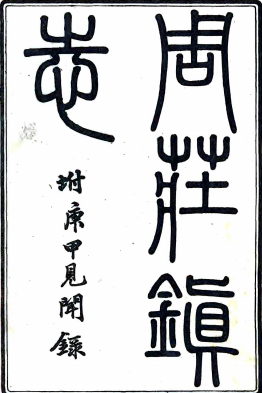 周莊鎮
志
坿庚甲見聞錄